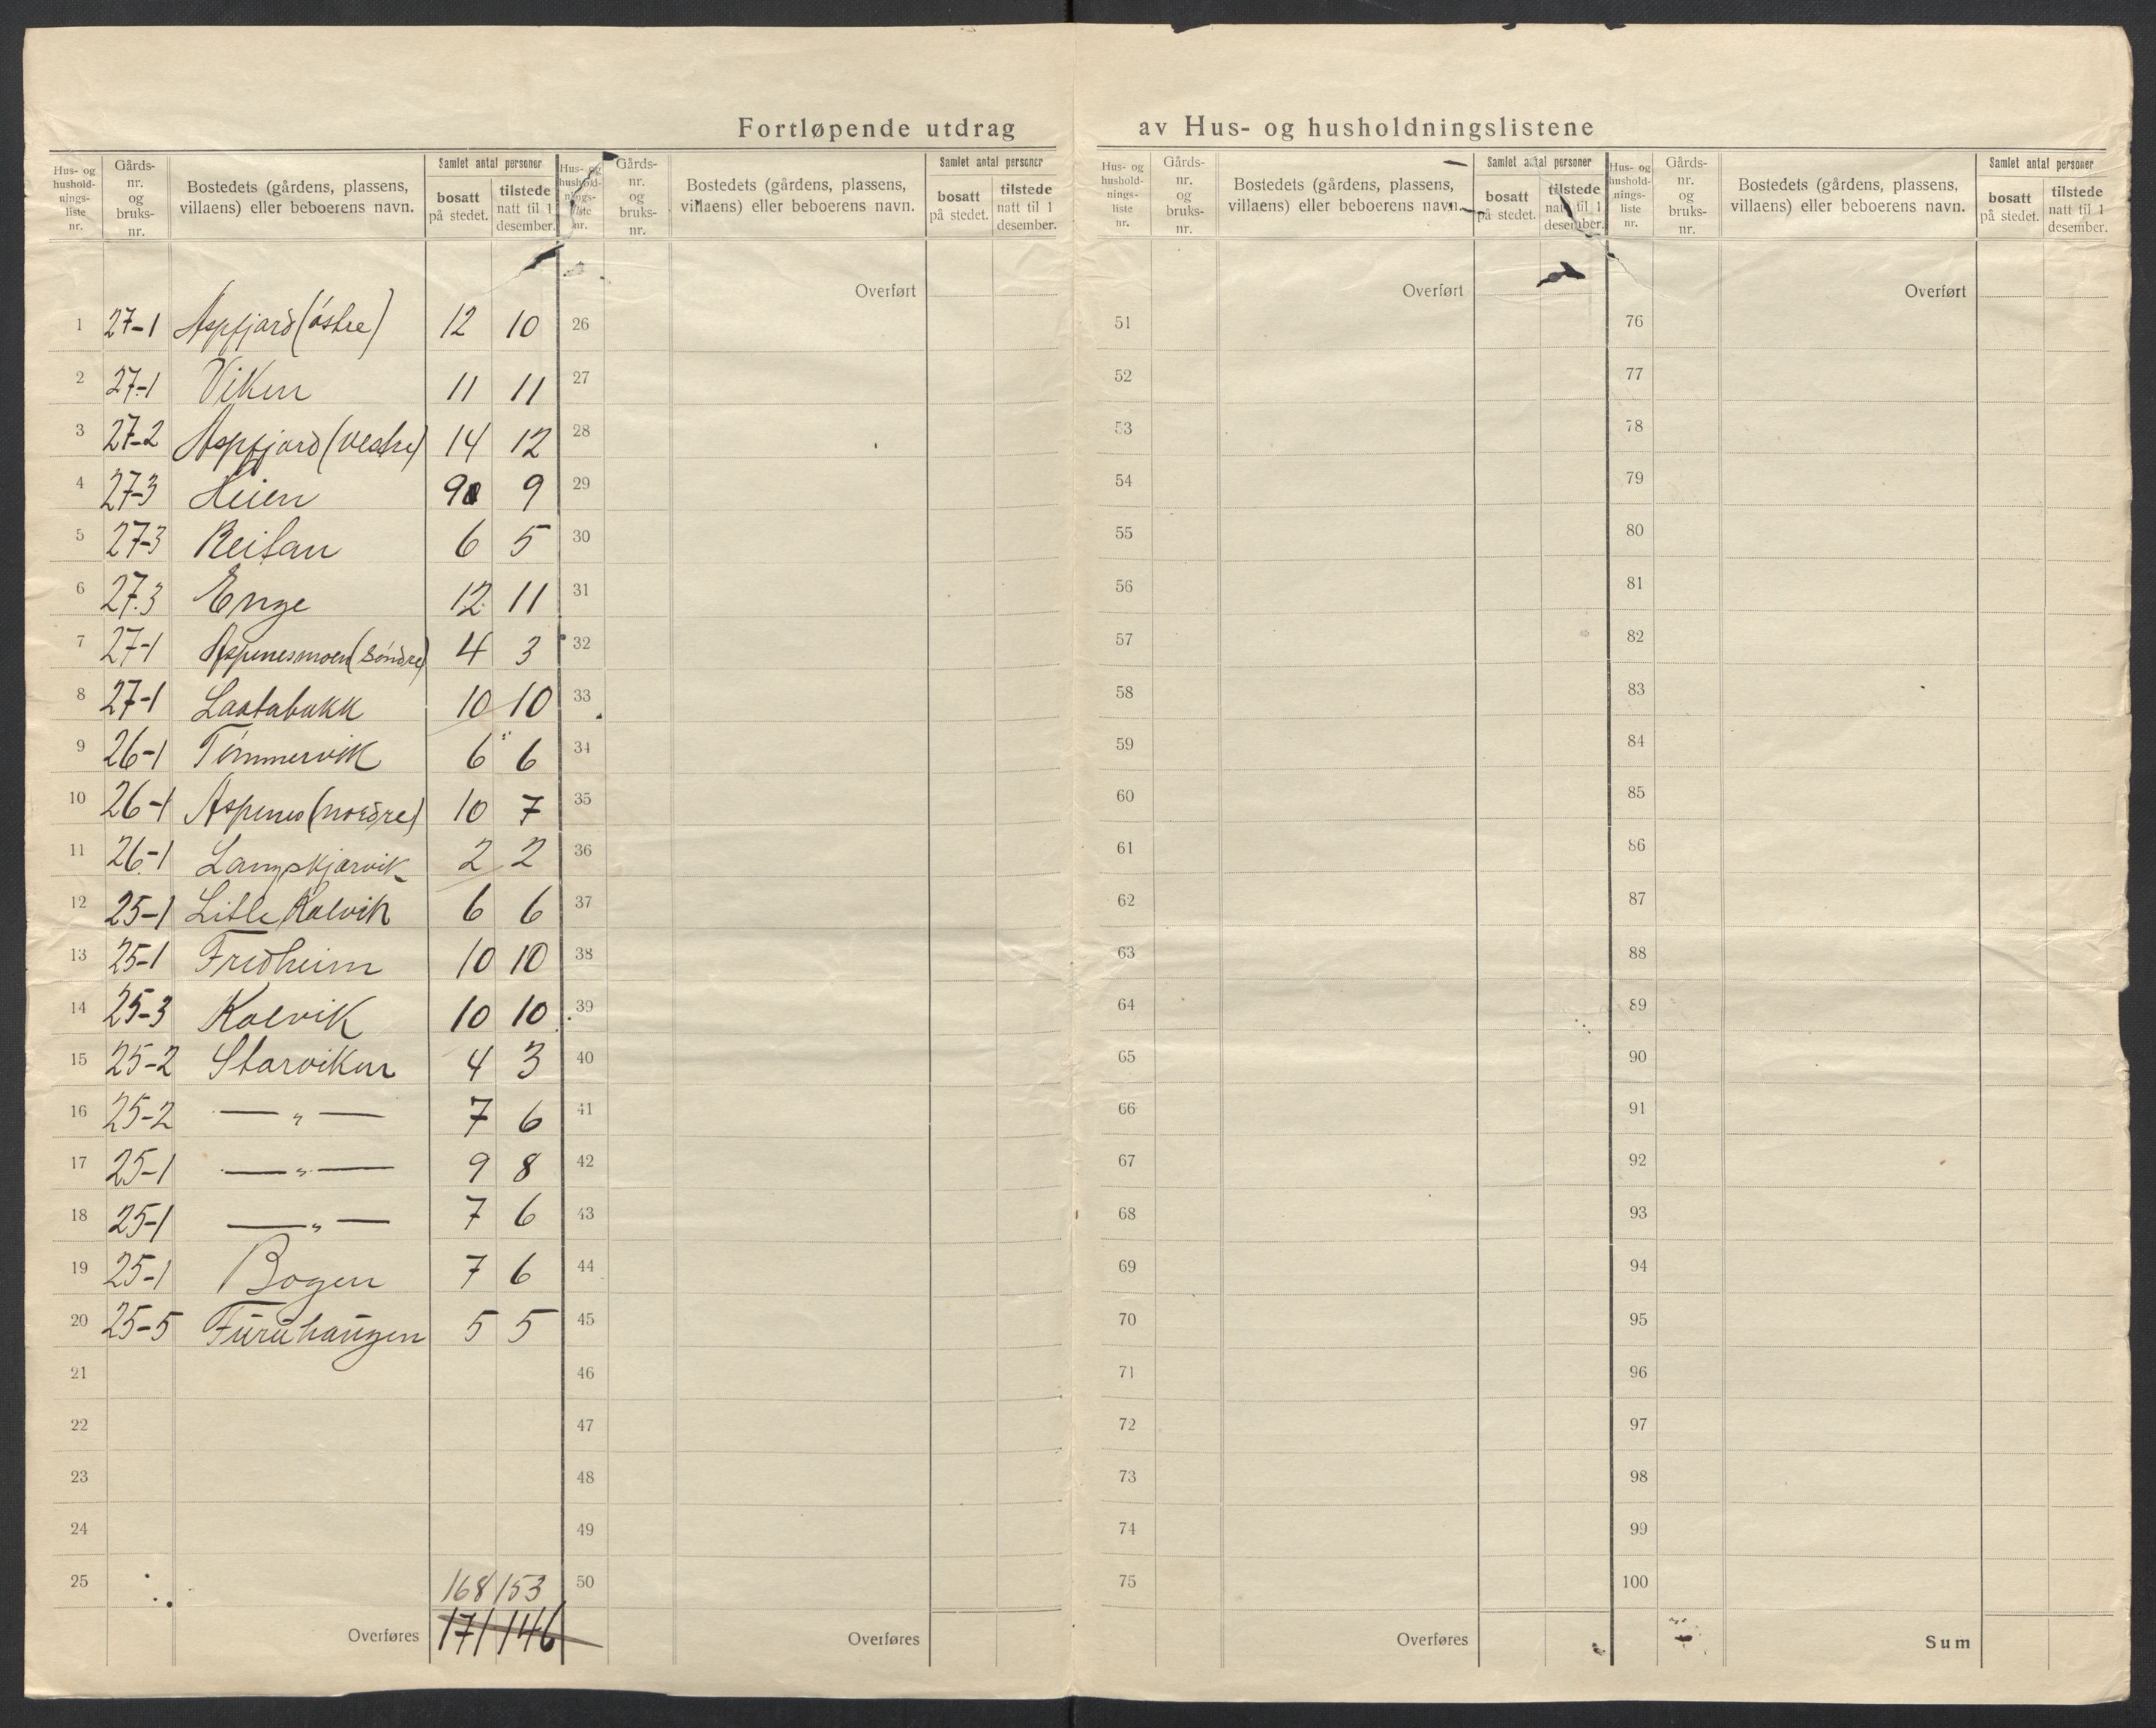 Fortløpende utdrag av Hus- og husholdningslistene
Hus- og hushold- nings- liste nr.
Gårds- nr. og bruks- nr.
Bostedets (gårdens, plassens, villaens) eller beboerens navn.
Samlet antal personer
bosatt på stedet.
tilstede natt til 1 desember.
Hus- og hushold- nings- liste nr.
Gårds- nr. og bruks- nr.
Bostedets (gårdens, plassens, villaens) eller beboerens navn.
Samlet antal personer
bosatt på stedet.
tilstede natt til 1 desember.
Hus- og hushold- nings- liste nr.
Gårds- nr. og bruks- nr.
Bostedets (gårdens, plassens, villaens) eller beboerens navn.
Samlet antal personer
bosatt på stedet.
tilstede natt til 1 desember.
Hus- og hushold- nings- liste nr.
Gårds- nr. og bruks- nr.
Bostedets (gårdens, plassens, villaens) eller beboerens navn.
Samlet antal personer
bosatt på stedet.
tilstede natt til 1 desember.
Overført Overført Overført
1 27-1 Aspfjord (östre) 12 10 26 51 76
2 27-1 Viken 11 11 27 52 77
3 27-2 Aspfjord (vestre) 14 12 28 53 78
4 27-3 Heien 9 9 29 54 79
5 27-3 Reitan 6 5 30 55 80
6 27.3 Enge 12 11 31 56 81
7 27-1 Aspenesmoen (söndre) 4 3 32 57 82
8 27-1 Laatabukk 10 10 33 58 83
9 26-1 Tömmervik 6 6 34 59 84
10 26-1 Aspenes (nordre) 10 7 35 60 85
11 26-1 Langskjærvik 2 2 36 61 86
12 25-1 Litle Kalvik 6 6 37 62 87
13 25-1 Fredheim 10 10 38 63 88
14 25-3 Kalvik 10 10 39 64 89
15 25-2 Storviken 4 3 40 65 90
16 25-2 — „ — 7 6 41 66 91
17 25-1 — „ — 9 8 42 67 92
18 25-1 — „ — 7 6 43 68 93
19 25-1 Bogen 7 6 44 69 94
20 25-5 Furuhaugen 5 5 45 70 95
21 46 71 96
22 47 72 97
23 48 73 98
24 49 74 99
25 168 153 50 75 100
Overføres 171 146 Overføres Overføres Sum